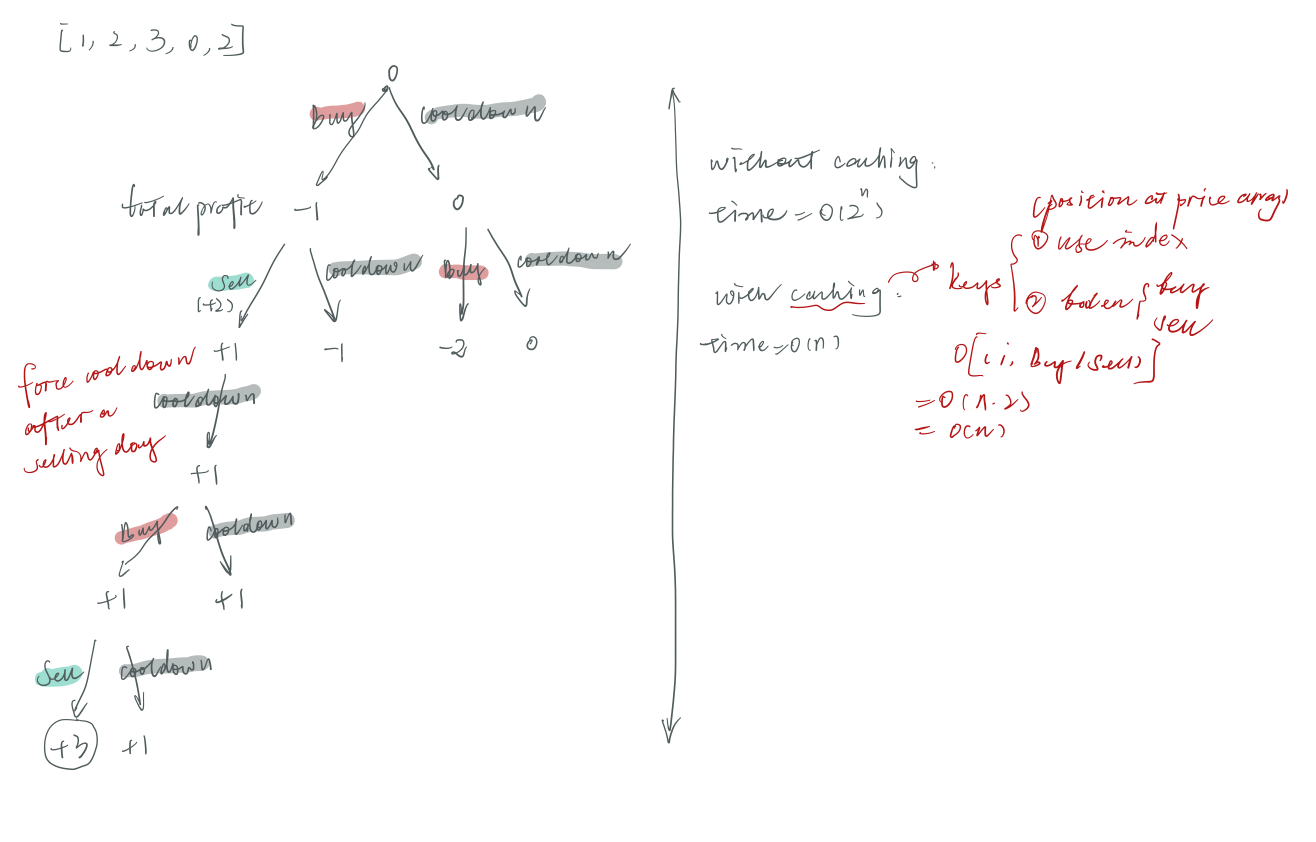 [1, 2, 3, 0, 2]
0
buy cooldown
total profit -1 0
sell cooldown buy cooldown
(+2)
+1 -1 -2 0
force cooldown
after a
selling day
cooldown
+1
Buy cooldown
+1 +1
Sell cooldown
+3 +1
without caching:
time = O(2^n)
with caching:
time = O(n)
keys
(position at price array)
① use index
② boolen { buy
sell
O[(i, Buy/Sell)]
= O(n·2)
= O(n)